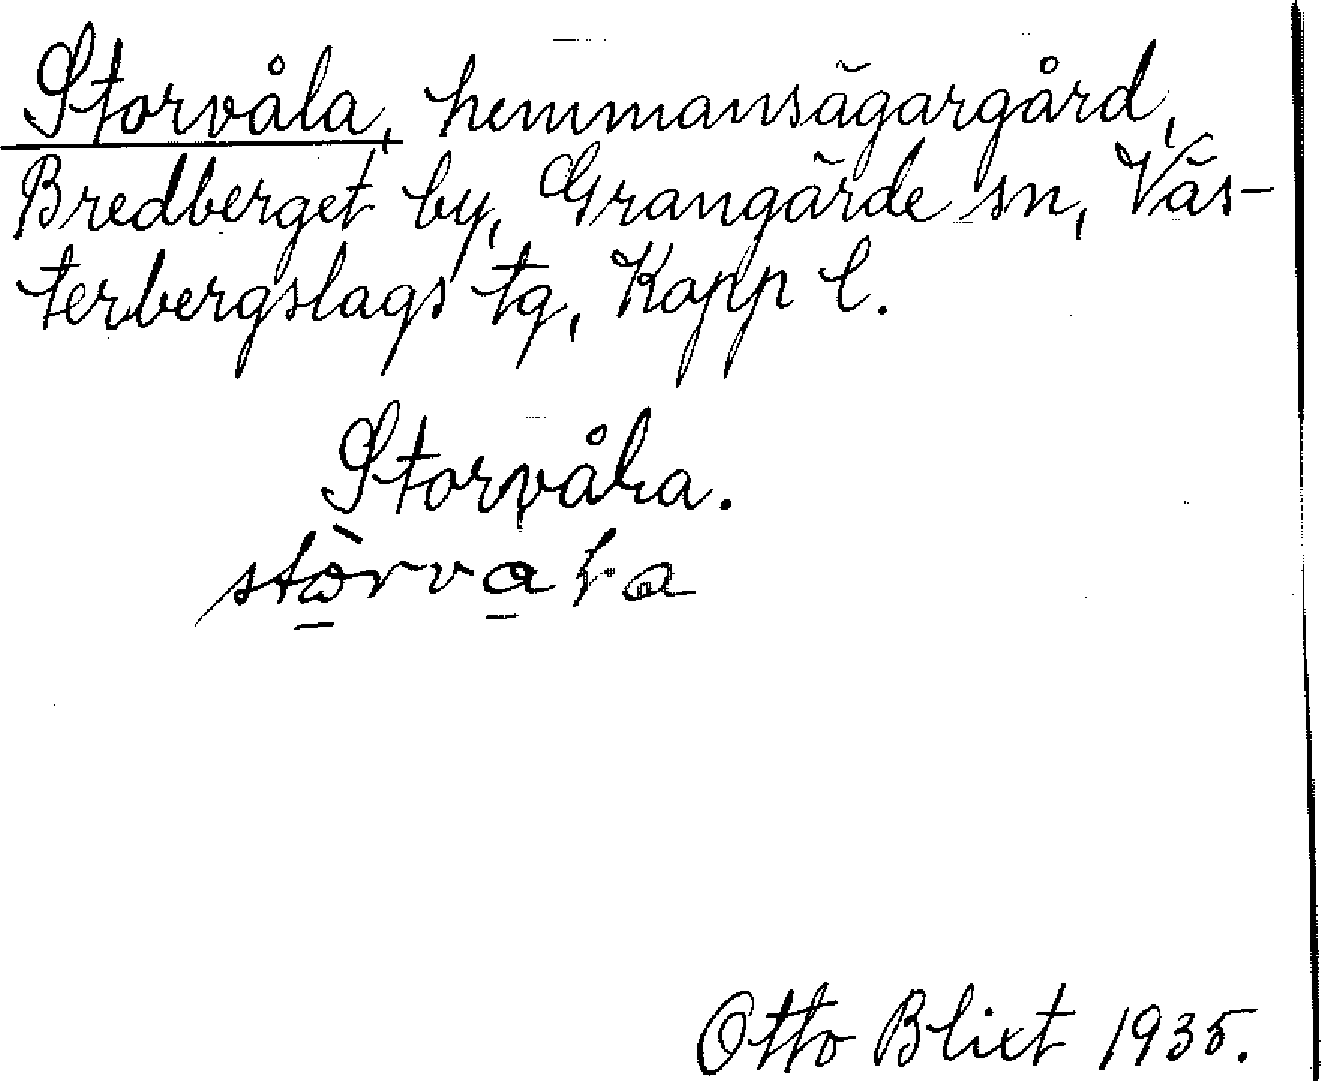 Storvåla, hemmansägargård,
Bredberget by, Grangärde sn, Väs-
terbergslags tg, Kopp l.
Storvåła.
stòrvała
Otto Blixt 1935.